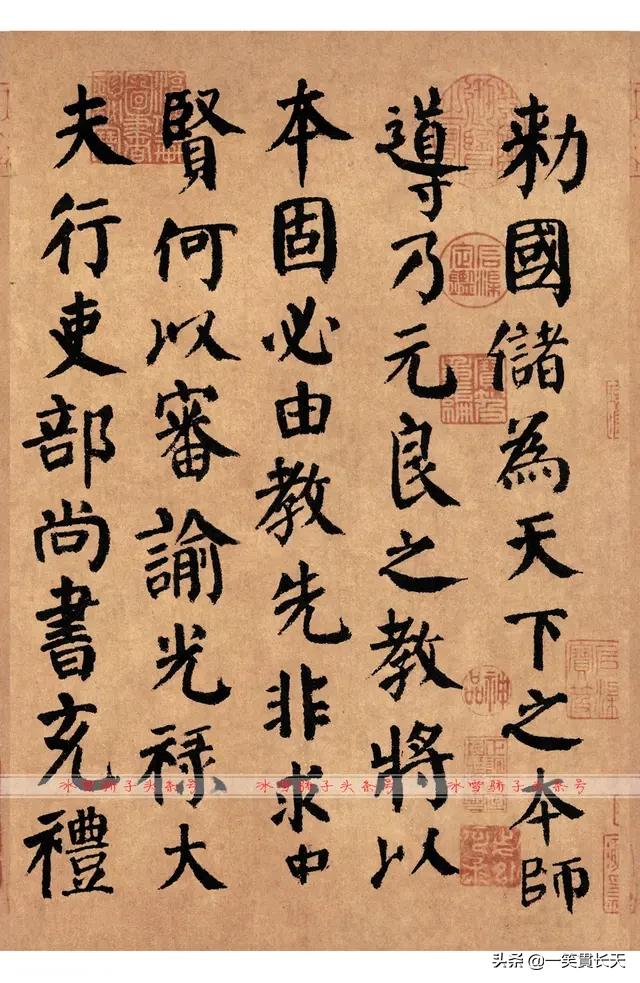 勑國儲為天下之本師
導乃元良之教將以
本固必由教先非求中
賢何以審諭光祿大
夫行吏部尚書充禮
石渠定鑑
石渠寶笈
神品
冰雪骄子头条号 冰雪骄子头条号 冰雪骄子头条号
头条 @一笑貫长天